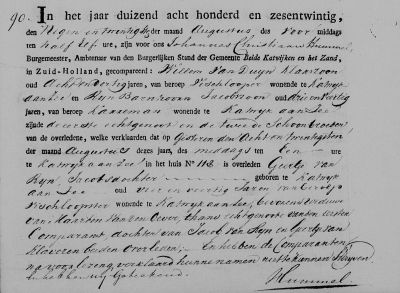 90. In het jaar duizend acht honderd en zesentwintig,
den Negen en twintigste der maand Augustus des voor middags
ten half Elf ure, zijn voor ons Johannes Christiaan Hummel
Burgemeester, Ambtenaar van den Burgerlijken Stand der Gemeente Beide Katwijken en het Zand,
in Zuid-Holland, gecompareerd: Willem van Duijn Klaaszoon
oud Acht en dertig jaren, van beroep Vischlooper wonende te Katwijk
aan Zee en Zoon oud drie en veertig
jaren, van beroep wonende te Katwijk aan Zee
zijnde de eerste echtgenoot en de tweede Schoonbroeder
van de overledene, welke verklaarden dat op Gisteren den Acht en twintigsten
der maand Augustus dezes jaars, des middags ten Een ure
te Katwijk aan Zee in het huis No 118 is overleden Geertje van
Rijn Jacobsdochter geboren te Katwijk
aan Zee oud vier en veertig Jaren van beroep
Vischloopster wonende te Katwijk aan Zee, bevorens weduwe
van Maarten van den Oever, thans echtgenoote van den eersten
Comparant dochter van Jacob van Rijn en Geertje van
Kloveren beiden overleden. En hebben de Comparanten
na voorlezing verklaard hunne namen niet te kunnen Schrijven
Hummel